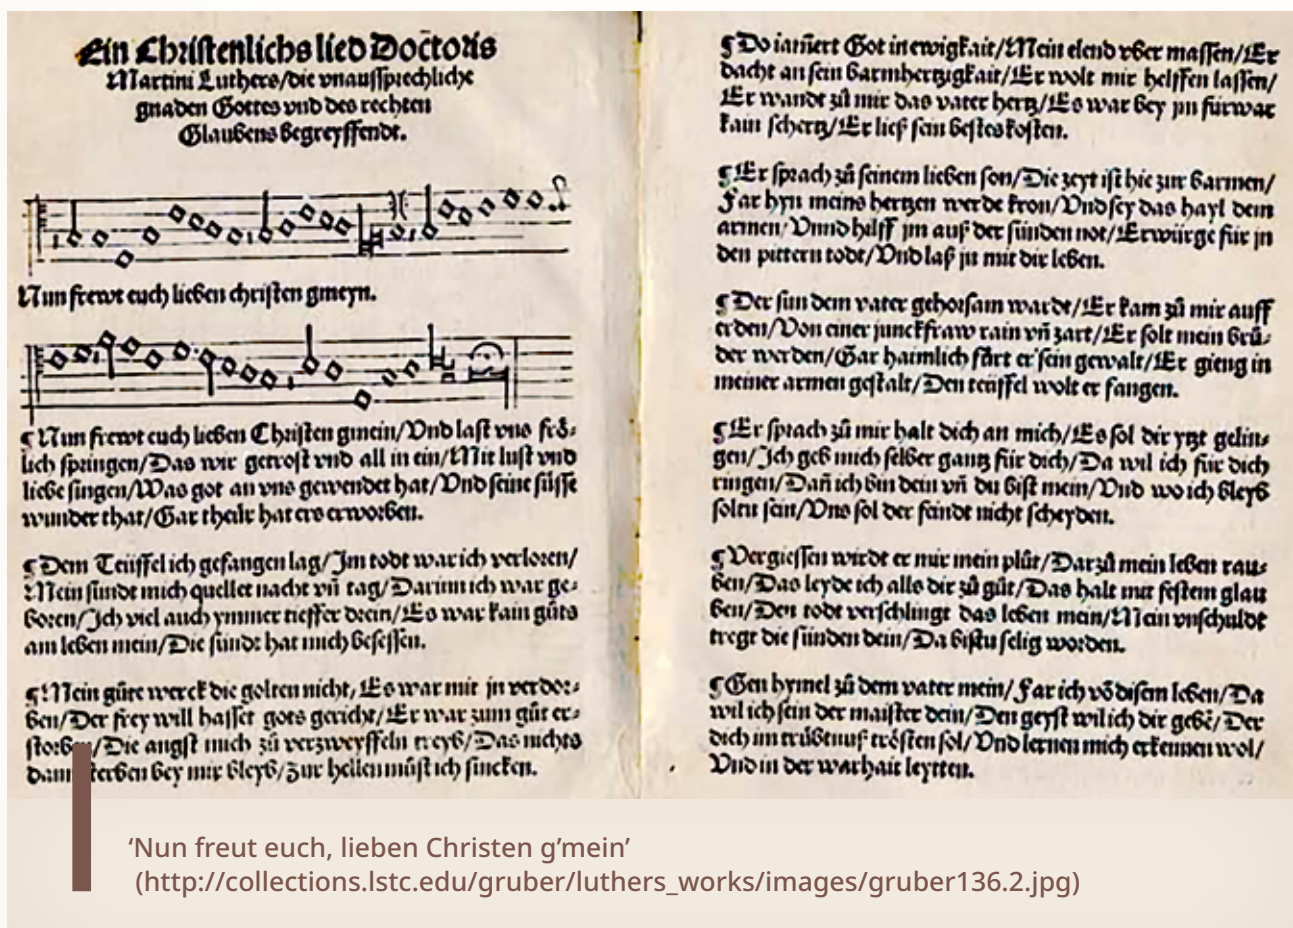 Ein Christenlichs lied Doctoris
Martini Luthers/die vnaussprechliche
gnaden Gottes vnd des rechten
Glaubens begreyffendt.
Nun frewt euch lieben christen gmeyn.
¶ Nun frewt euch lieben Christen gmein/Vnd last vns frö⸗
lich springen/Das wir getrost vnd all in ein/Mit lust vnd
liebe singen/Was got an vns gewendet hat/Vnd seine süsse
wunder that/Gar theür hat ers erworben.
¶ Dem Teüffel ich gefangen lag/Im todt war ich verloren/
Mein sünde mich quellet nacht vñ tag/Darinn ich war ge⸗
boren/Ich viel auch ymmer tieffer drein/Es war kain güts
am leben mein/Die sünde hat mich besessen.
¶ Mein güte werck die golten nicht, Es war mit jn verdor⸗
ben/Der frey will hasset gots gericht/Er war zum güt er⸗
/Die angst mich zů verzweyffeln treyb/Das nichts
sterben bey mir bleyb/zur hellen můst ich sincken.
¶ Do iamert Got in ewigkait/Mein elend vber massen/Er
dacht an sein barmhertzigkait/Er wolt mir helffen lassen/
Er wandt zů mir das vater hertz/Es war bey jm fürwar
kain schertz/Er ließ sein bestes kosten.
¶ Er sprach zů seinem lieben son/Die zeyt ist hie zur barmen/
Far hyn meins hertzen werde kron/Vnd sey das hayl dem
armen/Vnnd hilff jm auß der sünden not/Erwürge für jn
den pittern todt/Vnd laß jn mit dir leben.
¶ Der sun dem vater gehorsam wardt/Er kam zů mir auff
erden/Von einer junckfraw rain vñ zart/Er solt mein brů⸗
der werden/Gar haimlich fürt er sein gewalt/Er gieng in
meiner armen gestalt/Den teüffel wolt er fangen.
¶ Er sprach zů mir halt dich an mich/Es sol dir yzt gelin⸗
gen/Ich geb mich selber gantz für dich/Da wil ich für dich
ringen/Dañ ich bin dein vñ du bist mein/Vnd wo ich bleyb
soltu sein/Vns sol der feindt nicht scheyden.
¶ Vergiessen wirdt er mir mein plůt/Darzů mein leben rau⸗
ben/Das leyde ich alls dir zů gůt/Das halt mit festem glau
ben/Den todt verschlingt das leben mein/Mein vnschuldt
tregt die sünden dein/Da bistu selig worden.
¶ Gen hymel zů dem vater mein/Far ich võ disem leben/Da
wil ich sein der maister dein/Den geyst wil ich dir gebẽ/Der
dich im trübtnuß trösten sol/Vnd lernen mich erkennen wol/
Vnd in der warhait leytten.
‘Nun freut euch, lieben Christen g’mein’
(http://collections.lstc.edu/gruber/luthers_works/images/gruber136.2.jpg)